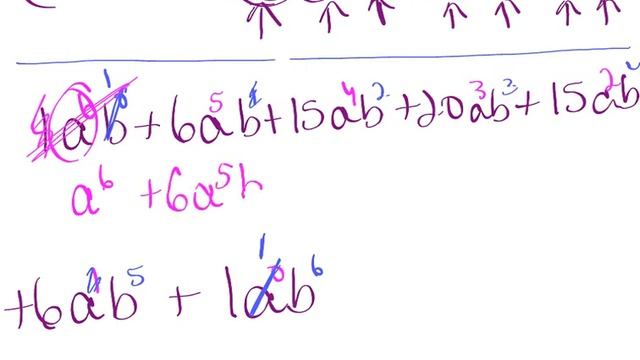 1a⁶b⁰ + 6a⁵b¹ + 15a⁴b² + 20a³b³ + 15a²b
a⁶ + 6a⁵b
+6a¹b⁵ + 1a⁰b⁶